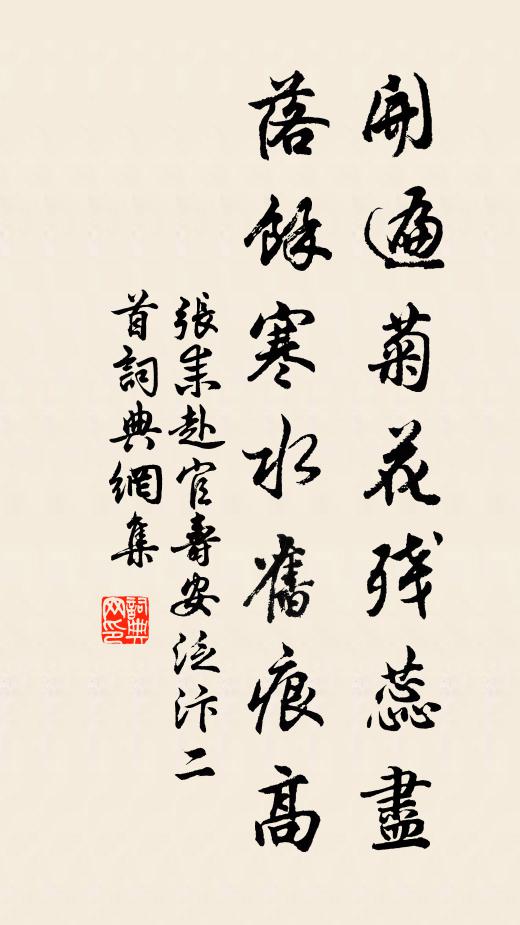 開遍菊花殘蕊盡
落餘寒水舊痕高
張耒赴官壽安泛汴二
首詞典網集
詞典
网印